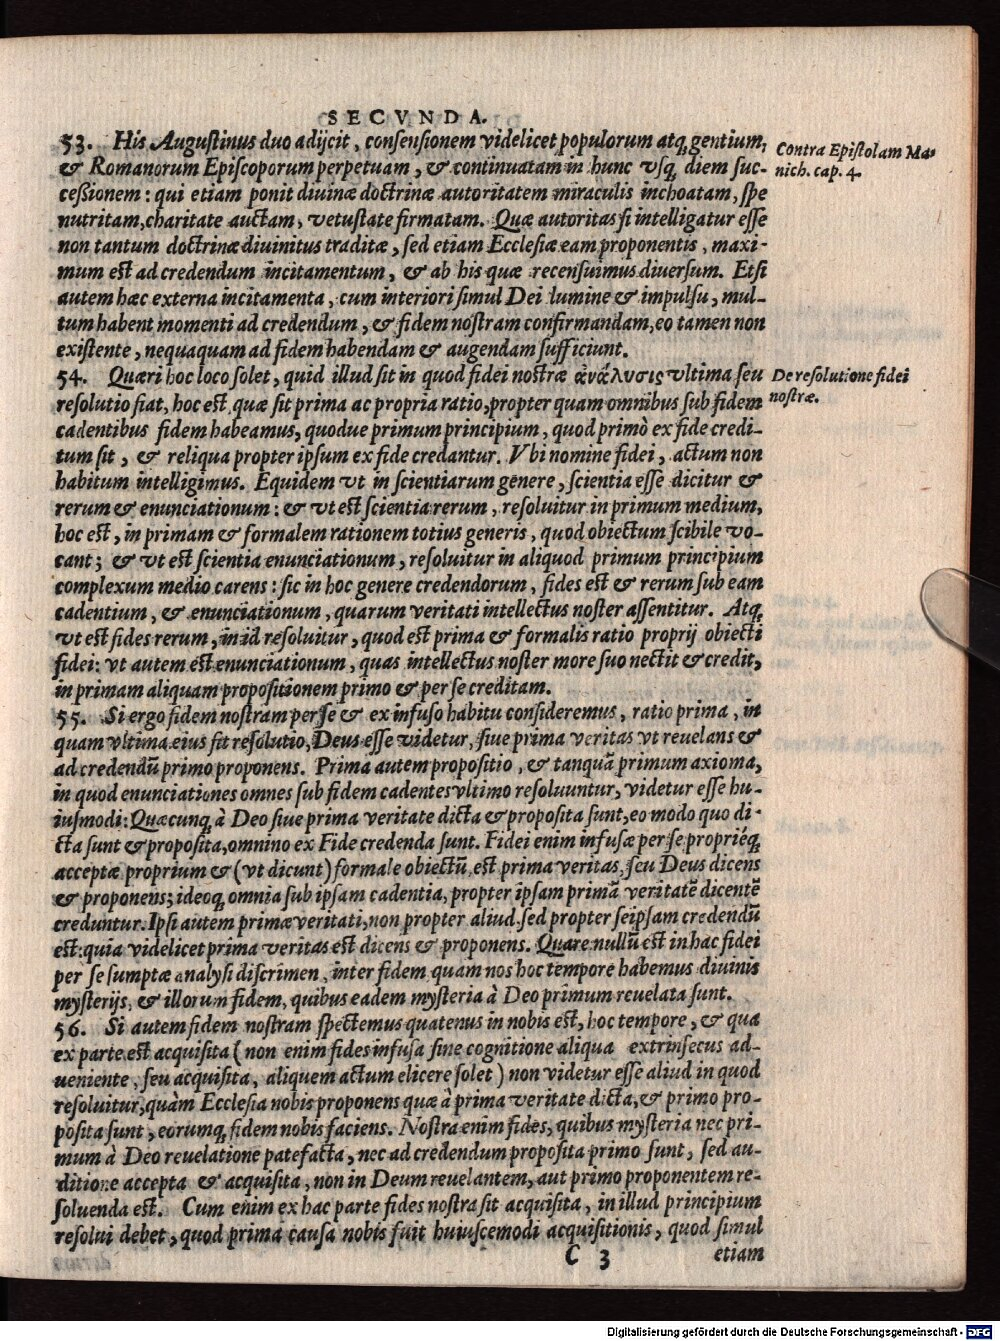 SECVNDA.
53. His Augustinus duo adijcit, consensionem videlicet populorum atq; gentium,
& Romanorum Episcoporum perpetuam, & continuatam in hunc vsq; diem suc-
cessionem: qui etiam ponit diuinæ doctrinæ autoritatem miraculis inchoatam, spe
nutritam, charitate auctam, vetustate firmatam. Quæ autoritas si intelligatur esse
non tantum doctrinæ diuinitus traditæ, sed etiam Ecclesiæ eam proponentis, maxi-
mum est ad credendum incitamentum, & ab his quæ recensuimus diuersum. Etsi
autem hæc externa incitamenta, cum interiori simul Dei lumine & impulsu, mul-
tum habent momenti ad credendum, & fidem nostram confirmandam, eo tamen non
existente, nequaquam ad fidem habendam & augendam sufficiunt.
Contra Epistolam Ma-
nich. cap. 4.
54. Quæri hoc loco solet, quid illud sit in quod fidei nostræ ἀνάλυσις vltima seu
resolutio fiat, hoc est, quæ sit prima ac propria ratio, propter quam omnibus sub fidem
cadentibus fidem habeamus, quodue primum principium, quod primò ex fide credi-
tum sit, & reliqua propter ipsum ex fide credantur. Vbi nomine fidei, actum non
habitum intelligimus. Equidem vt in scientiarum genere, scientia esse dicitur &
rerum & enunciationum: & vt est scientia rerum, resoluitur in primum medium,
hoc est, in primam & formalem rationem totius generis, quod obiectum scibile vo-
cant; & vt est scientia enunciationum, resoluitur in aliquod primum principium
complexum medio carens: sic in hoc genere credendorum, fides est & rerum sub eam
cadentium, & enunciationum, quarum veritati intellectus noster assentitur. Atq;
vt est fides rerum, in id resoluitur, quod est prima & formalis ratio proprij obiecti
fidei: vt autem est enunciationum, quas intellectus noster more suo nectit & credit,
in primam aliquam propositionem primo & per se creditam.
De resolutione fidei
nostræ.
55. Si ergo fidem nostram per se & ex infuso habitu consideremus, ratio prima, in
quam vltima eius fit resolutio, Deus esse videtur, siue prima veritas vt reuelans &
ad credendū primo proponens. Prima autem propositio, & tanquā primum axioma,
in quod enunciationes omnes sub fidem cadentes vltimo resoluuntur, videtur esse hu-
iusmodi: Quæcunq; à Deo siue prima veritate dicta & proposita sunt, eo modo quo di-
cta sunt & proposita, omnino ex Fide credenda sunt. Fidei enim infusæ per se propriéq;
acceptæ proprium & (vt dicunt) formale obiectū, est prima veritas, seu Deus dicens
& proponens; ideoq; omnia sub ipsam cadentia, propter ipsam primā veritatē dicentē
creduntur. Ipsi autem primæ veritati, non propter aliud, sed propter seipsam credendū
est: quia videlicet prima veritas est dicens & proponens. Quare nullū est in hac fidei
per se sumptæ analysi discrimen, inter fidem quam nos hoc tempore habemus diuinis
mysterijs, & illorum fidem, quibus eadem mysteria à Deo primum reuelata sunt.
56. Si autem fidem nostram spectemus quatenus in nobis est, hoc tempore, & qua
ex parte est acquisita (non enim fides infusa sine cognitione aliqua extrinsecus ad-
ueniente, seu acquisita, aliquem actum elicere solet) non videtur esse aliud in quod
resoluitur, quàm Ecclesia nobis proponens quæ à prima veritate dicta, & primo pro-
posita sunt, eorumq; fidem nobis faciens. Nostra enim fides, quibus mysteria nec pri-
mum à Deo reuelatione patefacta, nec ad credendum proposita primo sunt, sed au-
ditione accepta & acquisita, non in Deum reuelantem, aut primo proponentem re-
soluenda est. Cum enim ex hac parte fides nostra sit acquisita, in illud principium
resolui debet, quod prima causa nobis fuit huiuscemodi acquisitionis, quod simul
C 3 etiam
Digitalisierung gefördert durch die Deutsche Forschungsgemeinschaft - DFG